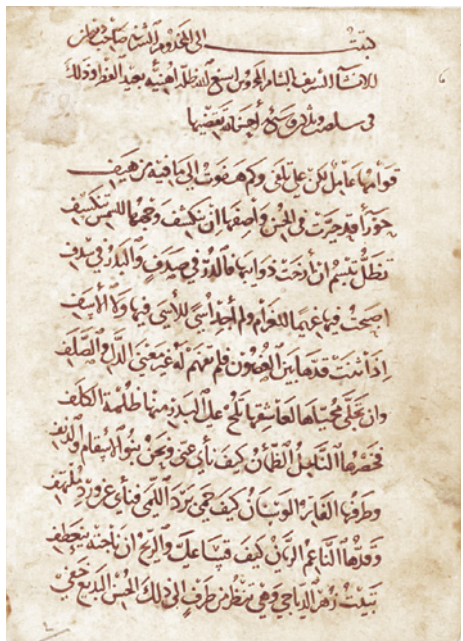 كتبت إلى المخدوم
للانشآء الشريف بالشام المحروس اسبغ الله ظله اهنيه بعيد الفطر وذلك
في سنة احسن الله تقضيها
قوامها عامل لكن على تلفى وكم هفوت الى ما فيه من هيف
حورآء قد حرت في الحسن واصفها ان تنكشف وجهها للشمس تنكسف
تظل تبسم ان أرخت ذوابها فالدر في صدف والبدر في سدف
اصبحت فيها غريما للغرام ولم أجد أسى للأسى فيها ولا الأسف
إذا ثنت قدها بين الغصون فلم تفهم له غير معنى الدل والصلف
وان تجلى محياها لعاشقها تلح على البدر منها ظلمة الكلف
فخصرها الناحل الظمآن كيف نأى عنى ونحن بنو الأسقام والدنف
وطرفها الفاتر الوسنان كيف حمى برد اللمى فنأى عن ورد ملتهف
وقدها الناعم الريان كيف قسا على والريح ان ناجته ينعطف
تبيت زهر الدياجي وهي تنظر من طرف إلى ذلك الحسن البديع خفى